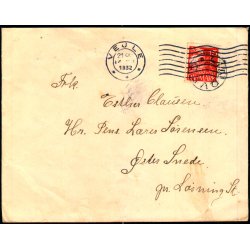 VEJLE
1932
Frk.
Esther Clausen
Hr. Jens Lars Sørensen
Øster Snede
pr. Løsning St.